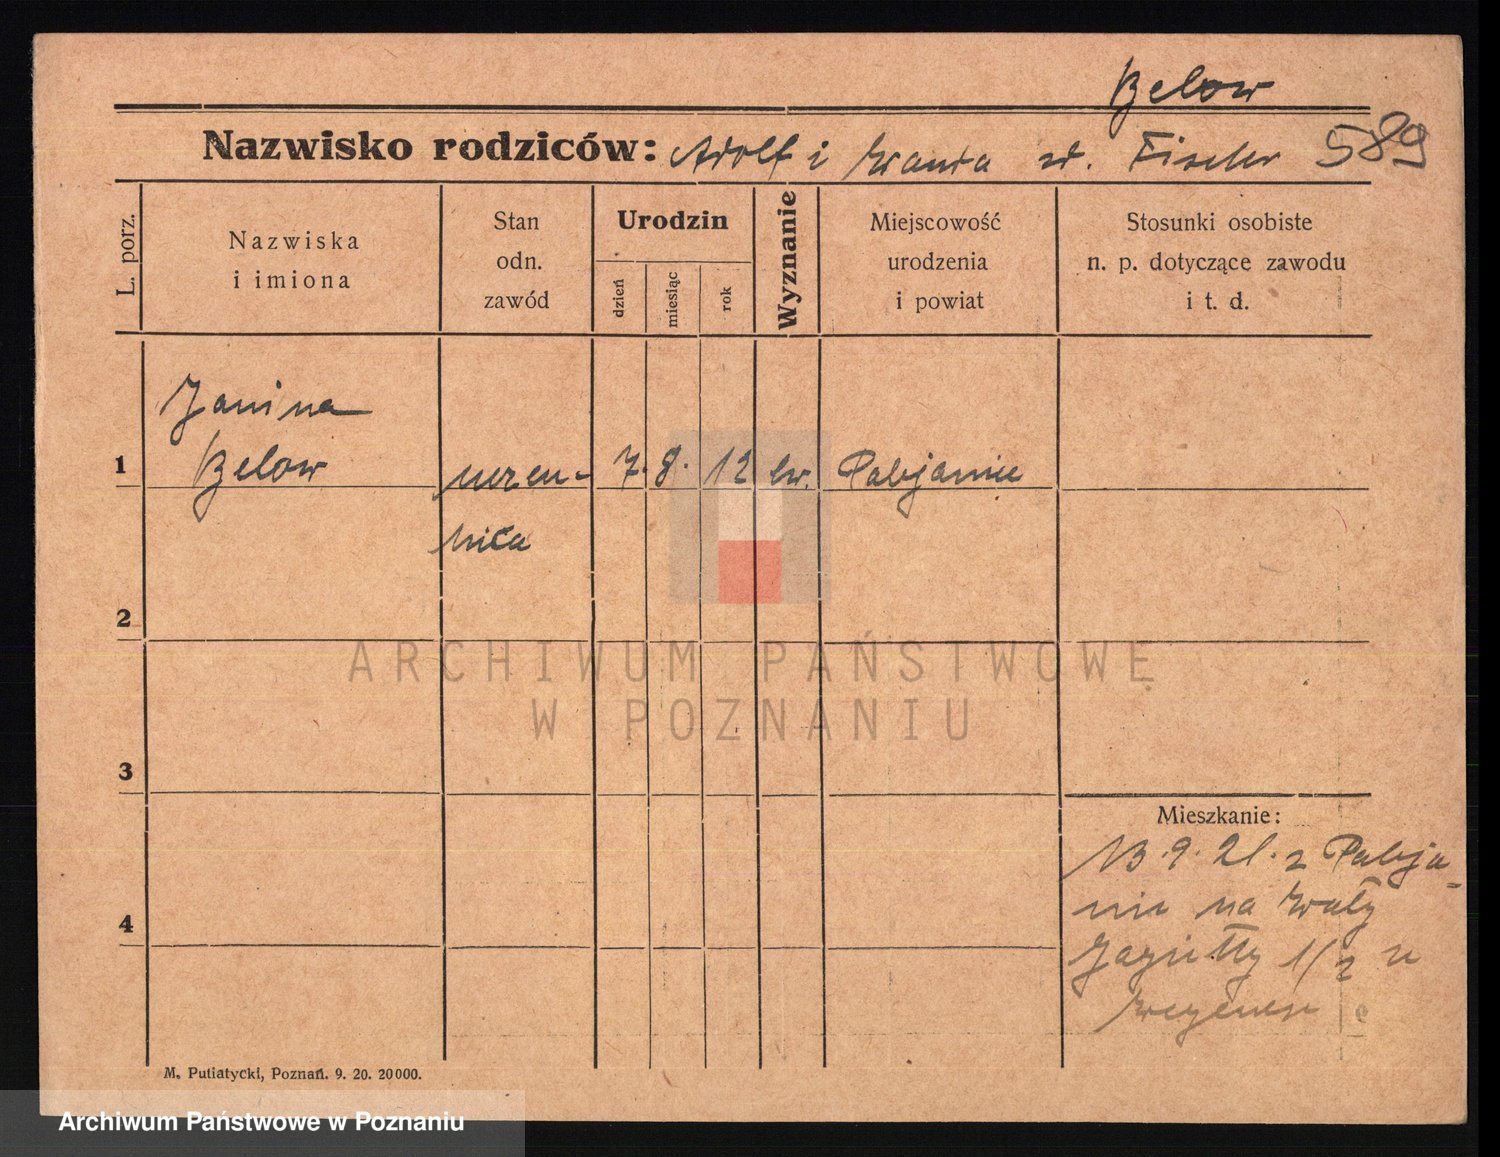 Below
Nazwisko rodziców: Adolf i Wanda zd. Fischer 589
L. porz.
Nazwiska
i imiona
Stan
odn.
zawód
Urodzin
dzień
miesiąc
rok
Wyznanie
Miejscowość
urodzenia
i powiat
Stosunki osobiste
n. p. dotyczące zawodu
i t. d.
Janina
1 Below uczen- 7. 8. 12 ew. Pabjanice
nica
2
ARCHIWUM PAŃSTWOWE
W POZNANIU
3
Mieszkanie:
13.9.21. z Pabja-
nic na Wały
4
Jagiełły 1/2 u
M. Putiatycki, Poznań. 9. 20. 20000.
Archiwum Państwowe w Poznaniu